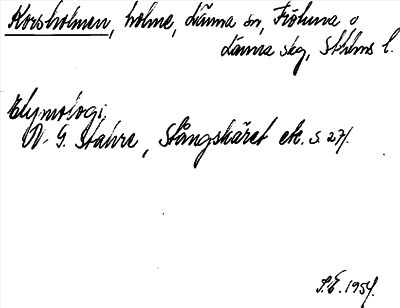 Korsholmen, holme, Länna sn, Frötuna o
Länna skg, Sthlms l.
Etymologi:
N. G. Stahre, Stångskäret etc. s. 27f.
S.E. 1954.